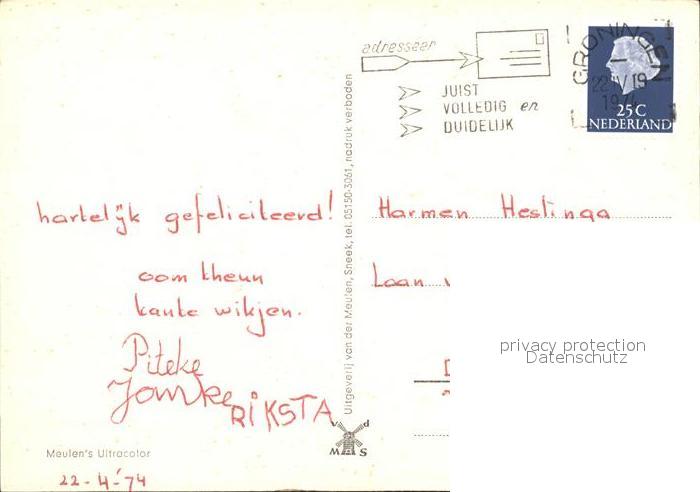 adresseer
JUIST
VOLLEDIG en
DUIDELIJK
GRONINGEN
22 IV 19
1974
25C
NEDERLAND
hartelijk gefeliciteerd!
oom theun
tante wikjen.
Piteke
Jamke
RiKSTA
Meulen's Ultracolor
22-4-'74
Uitgeverij van der Meulen, Sneek, tel. 05150-3061, nadruk verboden
v d
M S
Harmen Hestinga
Laan v
privacy protection
Datenschutz